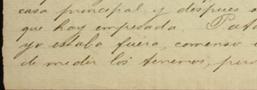 casa principal y despues o
que hay empesada. Pato
yo estaba fuera, comenso o
de medir los terrenos, pero